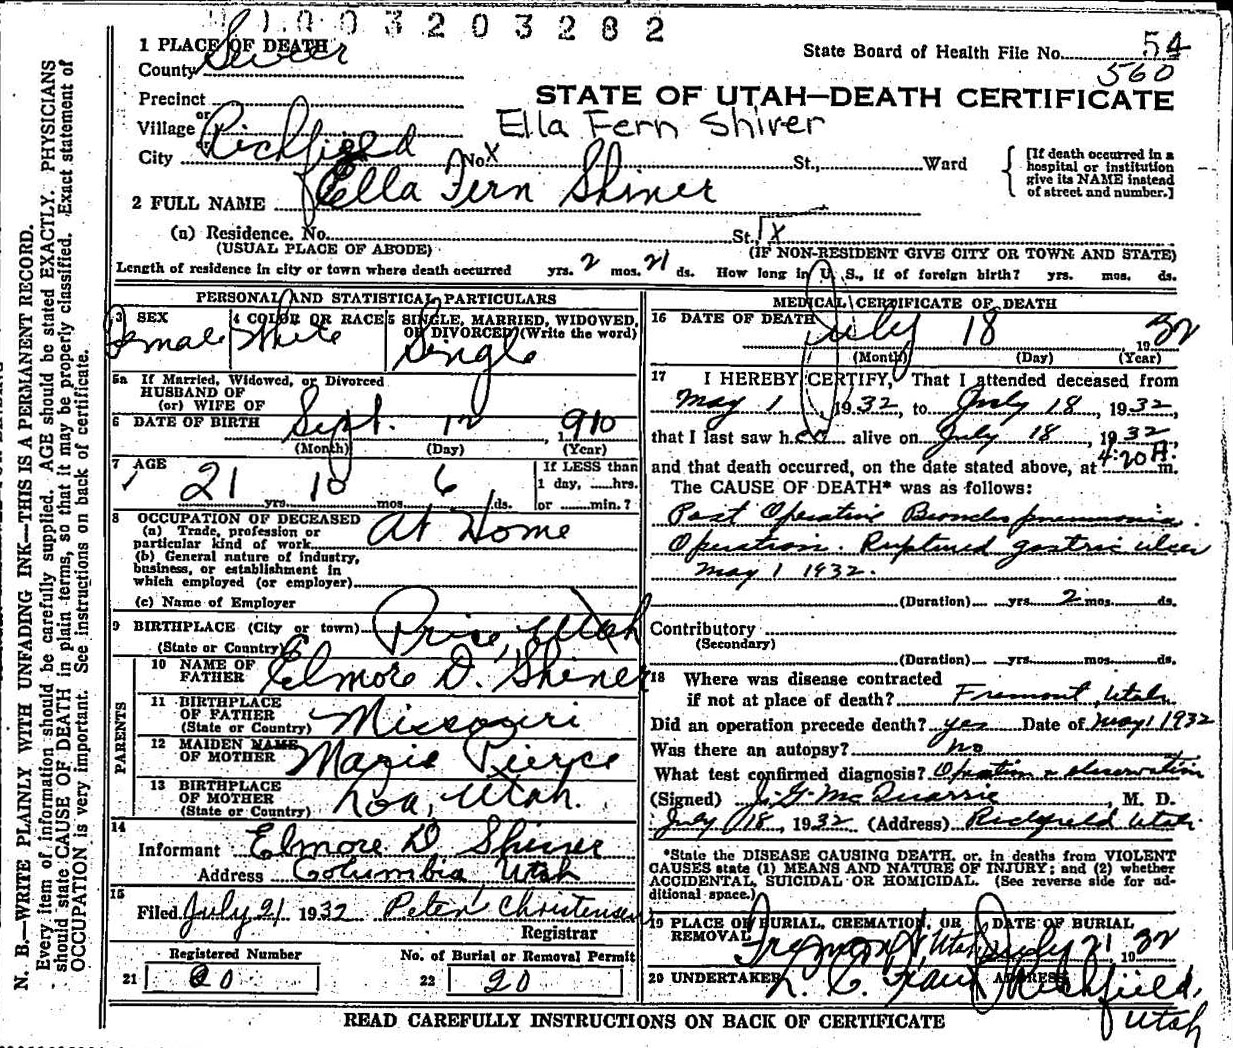 1003203282
1 PLACE OF DEATH
State Board of Health File No. 54
County Sevier
560
Precinct
STATE OF UTAH—DEATH CERTIFICATE
or
Village
Ella Fern Shiver
or
City Richfield No. X St., Ward
[If death occurred in a hospital or institution give its NAME instead of street and number.]
2 FULL NAME Ella Fern Shiner
(a) Residence. No. St. X
(USUAL PLACE OF ABODE) (IF NON-RESIDENT GIVE CITY OR TOWN AND STATE)
Length of residence in city or town where death occurred yrs. 2 mos. 21 ds. How long in U. S., if of foreign birth? yrs. mos. ds.
PERSONAL AND STATISTICAL PARTICULARS
3 SEX
Female
4 COLOR OR RACE
White
5 SINGLE, MARRIED, WIDOWED, OR DIVORCED (Write the word)
Single
5a If Married, Widowed, or Divorced
HUSBAND OF
(or) WIFE OF
6 DATE OF BIRTH Sept. 12, 1910
(Month) (Day) (Year)
7 AGE
21 yrs. 10 mos. 6 ds.
If LESS than
1 day, ......hrs.
or ......min.?
8 OCCUPATION OF DECEASED
(a) Trade, profession or
particular kind of work At Home
(b) General nature of industry,
business, or establishment in
which employed (or employer)
(c) Name of Employer
9 BIRTHPLACE (City or town) Price, Utah
(State or Country)
PARENTS
10 NAME OF
FATHER Elmore D. Shiner
11 BIRTHPLACE
OF FATHER
(State or Country) Missouri
12 MAIDEN NAME
OF MOTHER Marie Pierce
13 BIRTHPLACE
OF MOTHER
(State or Country) Loa, Utah.
14
Informant Elmore D Shiner
Address Columbia, Utah
15
Filed July 21 1932 Peter Christensen
Registrar
Registered Number
21 20
No. of Burial or Removal Permit
22 20
MEDICAL CERTIFICATE OF DEATH
16 DATE OF DEATH July 18, 1932
(Month) (Day) (Year)
17 I HEREBY CERTIFY, That I attended deceased from
May 1, 1932, to July 18, 1932,
that I last saw her alive on July 18, 1932,
and that death occurred, on the date stated above, at 4:20 A. m.
The CAUSE OF DEATH* was as follows:
Post Operative Broncho pneumonia.
Operation. Ruptured gastric ulcer
May 1 1932.
(Duration) yrs. 2 mos. ds.
Contributory
(Secondary)
(Duration) yrs. mos. ds.
18 Where was disease contracted
if not at place of death? Fremont, Utah
Did an operation precede death? yes Date of May 1 1932
Was there an autopsy? no
What test confirmed diagnosis? Operation & observation
(Signed) J. G. McQuarrie, M. D.
July 18, 1932 (Address) Richfield Utah
*State the DISEASE CAUSING DEATH, or, in deaths from VIOLENT
CAUSES state (1) MEANS AND NATURE OF INJURY; and (2) whether
ACCIDENTAL, SUICIDAL OR HOMICIDAL. (See reverse side for ad-
ditional space.)
19 PLACE OF BURIAL, CREMATION, OR
REMOVAL Fremont, Utah
DATE OF BURIAL
July 21 1932
20 UNDERTAKER
L. C.
ADDRESS
Richfield,
Utah
READ CAREFULLY INSTRUCTIONS ON BACK OF CERTIFICATE
N. B.—WRITE PLAINLY WITH UNFADING INK—THIS IS A PERMANENT RECORD.
Every item of information should be carefully supplied. AGE should be stated EXACTLY. PHYSICIANS
should state CAUSE OF DEATH in plain terms, so that it may be properly classified. Exact statement of
OCCUPATION is very important. See instructions on back of certificate.